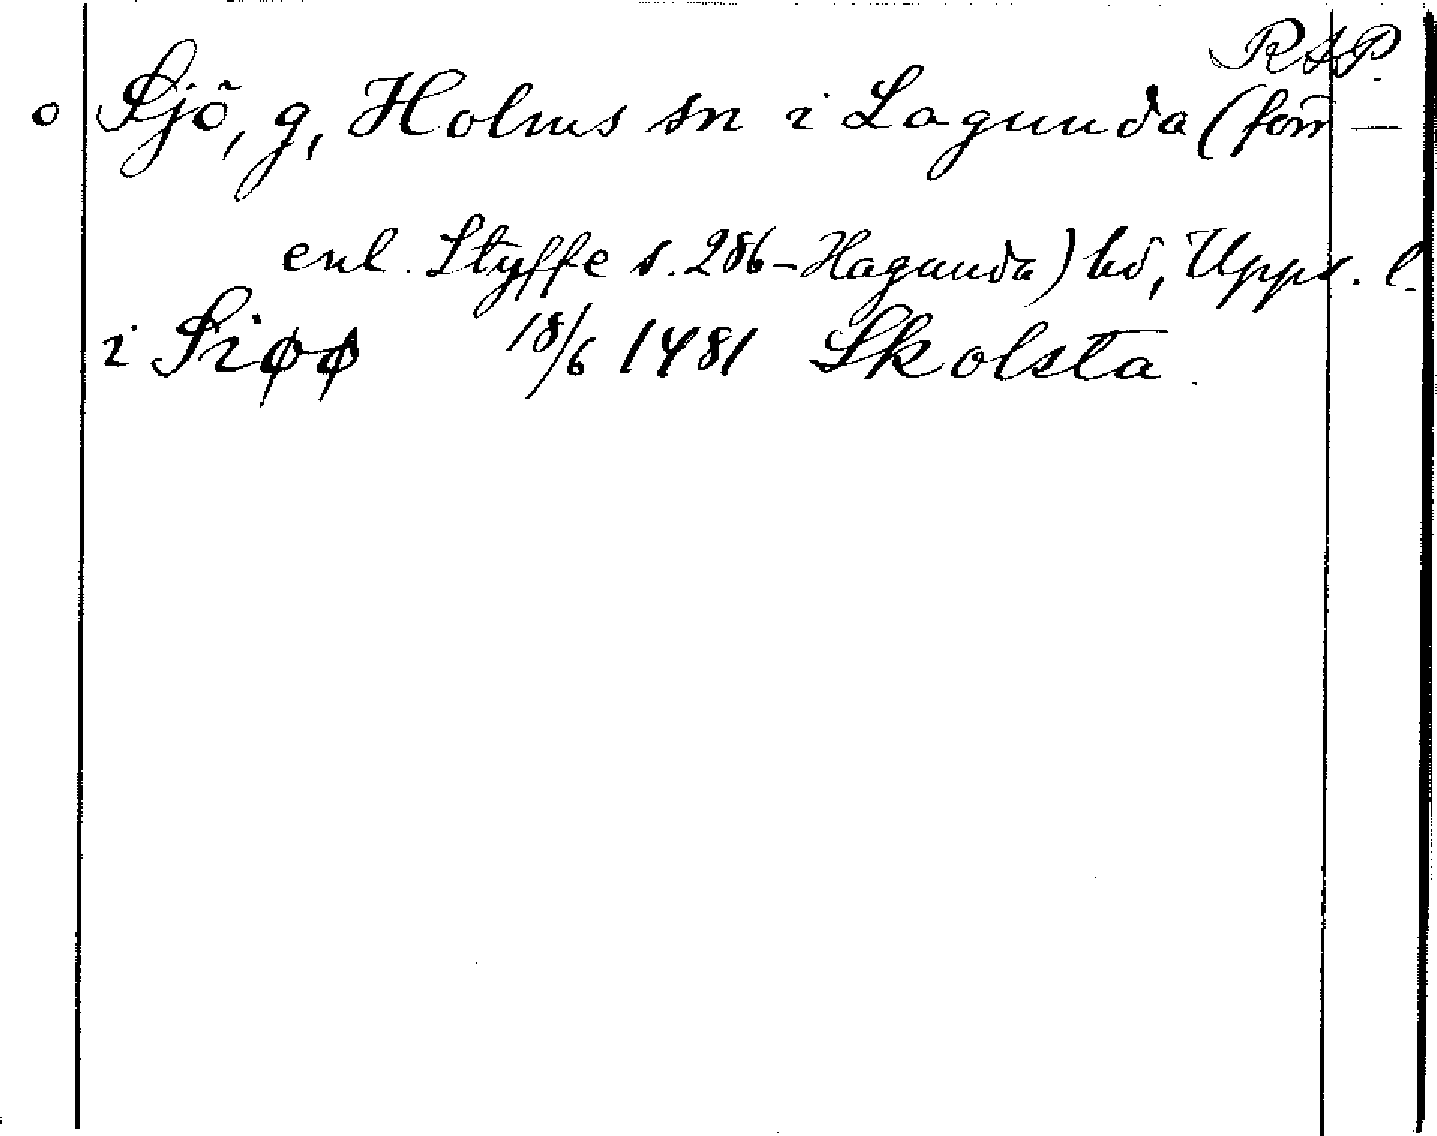 RAP.
o Sjö, g, Holms sn i Lagunda (förr —
enl. Styffe s. 286 - Hagunda) hd, Upps. l.
i Siøø 18/6 1481 Skolsta.